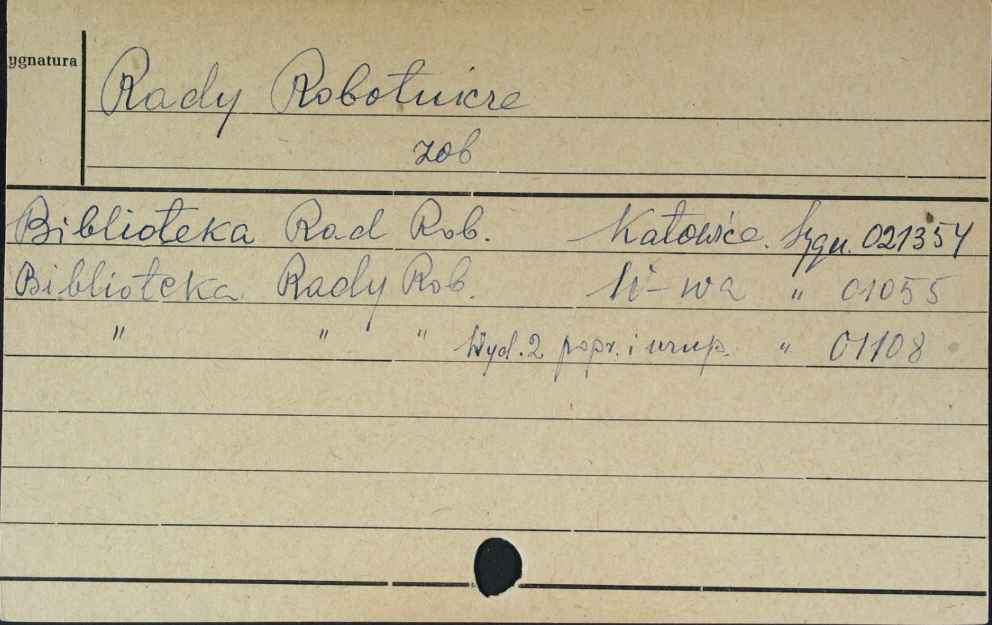 ygnatura
Rady Robotnicze
zob
Biblioteka Rad Rob. Katowice. Sygn. 021354
Biblioteka Rady Rob. W-wa " 01055
" " " Wyd. 2 popr. i uzup. " 01108